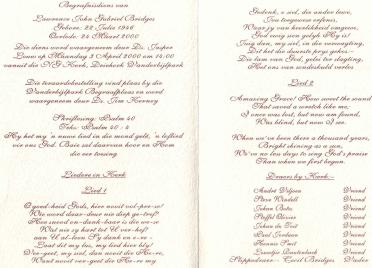 Begrafnisdiens van
Lawrence John Gabriel Bridges
Gebore: 22 Julie 1946
Oorlede: 24 Maart 2000
Die diens word waargeneem deur Ds. Jasper
Louw op Maandag 3 April 2000 om 14:00
vanuit die NG Kerk, Driehoek Vanderbijlpark
Die teraardebestelling vind plaas by die
Vanderbijlpark Begraafplaas en word
waargeneem deur Ds. Jim Kerney
Skriflesing: Psalm 40
Teks: Psalm 40 : 4
Hy het my 'n nuwe lied in die mond gelê, 'n loflied
vir ons God. Baie sal daarvan hoor en Hom
die eer toesing
Liedere in Kerk
Lied 1
O goedheid Gods, hier nooit volprese!
Wie word daar deur nie diep getref?
Hoe snood ondankbaar is die wese
Wat nie sy hart tot U verhef?
aan U alleen Sy dank en eer
Laat dit my los, my lied hier bly!
Vergeet, my siel, dan nooit die Here,
Want nooit vergeet die Here my
Gedenk, o siel, die ander lewe,
Jou toegewese erfenis,
Waar jy van heerlikheid omgewe,
God ewig sien gelyk Hy is!
Juig dan, my siel, in die verwagting,
Dit het die duurste prys gekos,
Die lam van God, gelei ter slagting,
Het ons van sondeskuld verlos
Lied 2
Amazing Grace! How sweet the sound
That saved a wretch like me,
I once was lost, but now am found,
Was blind, but now I see.
When we've been there a thousand years,
Bright shining as sun,
We've no less days to sing God's praise
Than when we first began.
Draers by Kerk:-
André Viljoen Vriend
Steve Waddell Vriend
Johan Botes Vriend
Stoffel Vriend
Johan du Toit Vriend
Paul Vriend
Hennie Smit Vriend
Vriend
Slippedraer - Cecil Bridges Vader